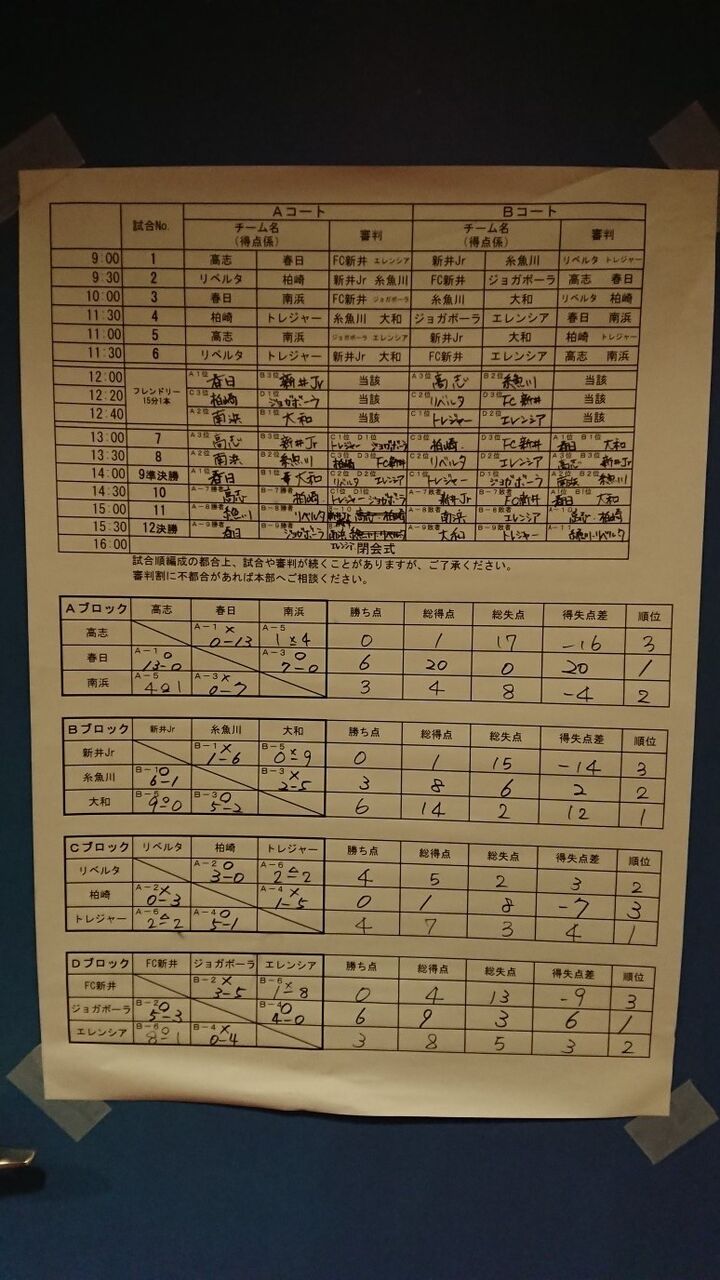 Aコート Bコート
試合No. チーム名(得点係) 審判 チーム名(得点係) 審判
9:00 1 高志 春日 FC新井 エレンシア 新井Jr 糸魚川 リベルタ トレジャー
9:30 2 リベルタ 柏崎 新井Jr 糸魚川 FC新井 ジョガボーラ 高志 春日
10:00 3 春日 南浜 FC新井 ジョガボーラ 糸魚川 大和 リベルタ 柏崎
11:30 4 柏崎 トレジャー 糸魚川 大和 ジョガボーラ エレンシア 春日 南浜
11:00 5 高志 南浜 ジョガボーラ エレンシア 新井Jr 大和 柏崎 トレジャー
11:30 6 リベルタ トレジャー 新井Jr 大和 FC新井 エレンシア 高志 南浜
フレンドリー 15分1本
12:00 A1位 春日 B3位 新井Jr 当該 A3位 高志 B2位 糸魚川 当該
12:20 C3位 柏崎 D1位 ジョガボーラ 当該 C2位 リベルタ D3位 FC新井 当該
12:40 A2位 南浜 B1位 大和 当該 C1位 トレジャー D2位 エレンシア 当該
13:00 7 A3位 高志 B3位 新井Jr C1位 D1位 トレジャー ジョガボーラ C3位 柏崎 D3位 FC新井 A1位 B1位 春日 大和
13:30 8 A2位 南浜 B2位 糸魚川 C3位 D3位 柏崎 FC新井 C2位 リベルタ D2位 エレンシア A3位 B3位 高志 新井Jr
14:00 9準決勝 A1位 春日 B1位 大和 C2位 D2位 リベルタ エレンシア C1位 トレジャー D1位 ジョガボーラ A2位 B2位 南浜 糸魚川
14:30 10 A-7勝者 高志 B-7勝者 柏崎 C1位 D1位 トレジャー ジョガボーラ A-7敗者 新井Jr B-7敗者 FC新井 A1位 B1位 春日 大和
15:00 11 A-8勝者 糸魚川 B-8勝者 リベルタ 高志 柏崎 A-8敗者 南浜 B-8敗者 エレンシア 高志・柏崎
15:30 12決勝 A-9勝者 春日 B-9勝者 ジョガボーラ 南浜 糸魚川・リベルタ A-9敗者 大和 B-9敗者 トレジャー A-11 糸魚川・リベルタ
16:00 エレンシア 閉会式
試合順編成の都合上、試合や審判が続くことがありますが、ご了承ください。
審判割に不都合があれば本部へご相談ください。
Aブロック 高志 春日 南浜 勝ち点 総得点 総失点 得失点差 順位
高志 A-1 × 0-13 A-5 × 1-4 0 1 17 -16 3
春日 A-1 ○ 13-0 A-3 ○ 7-0 6 20 0 20 1
南浜 A-5 ○ 4-1 A-3 × 0-7 3 4 8 -4 2
Bブロック 新井Jr 糸魚川 大和 勝ち点 総得点 総失点 得失点差 順位
新井Jr B-1 × 1-6 B-5 × 0-9 0 1 15 -14 3
糸魚川 B-1 ○ 6-1 B-3 × 2-5 3 8 6 2 2
大和 B-5 ○ 9-0 B-3 ○ 5-2 6 14 2 12 1
Cブロック リベルタ 柏崎 トレジャー 勝ち点 総得点 総失点 得失点差 順位
リベルタ A-2 ○ 3-0 A-6 △ 2-2 4 5 2 3 2
柏崎 A-2 × 0-3 A-4 × 1-5 0 1 8 -7 3
トレジャー A-6 △ 2-2 A-4 ○ 5-1 4 7 3 4 1
Dブロック FC新井 ジョガボーラ エレンシア 勝ち点 総得点 総失点 得失点差 順位
FC新井 B-2 × 3-5 B-6 × 1-8 0 4 13 -9 3
ジョガボーラ B-2 ○ 5-3 B-4 ○ 4-0 6 9 3 6 1
エレンシア B-6 ○ 8-1 B-4 × 0-4 3 8 5 3 2